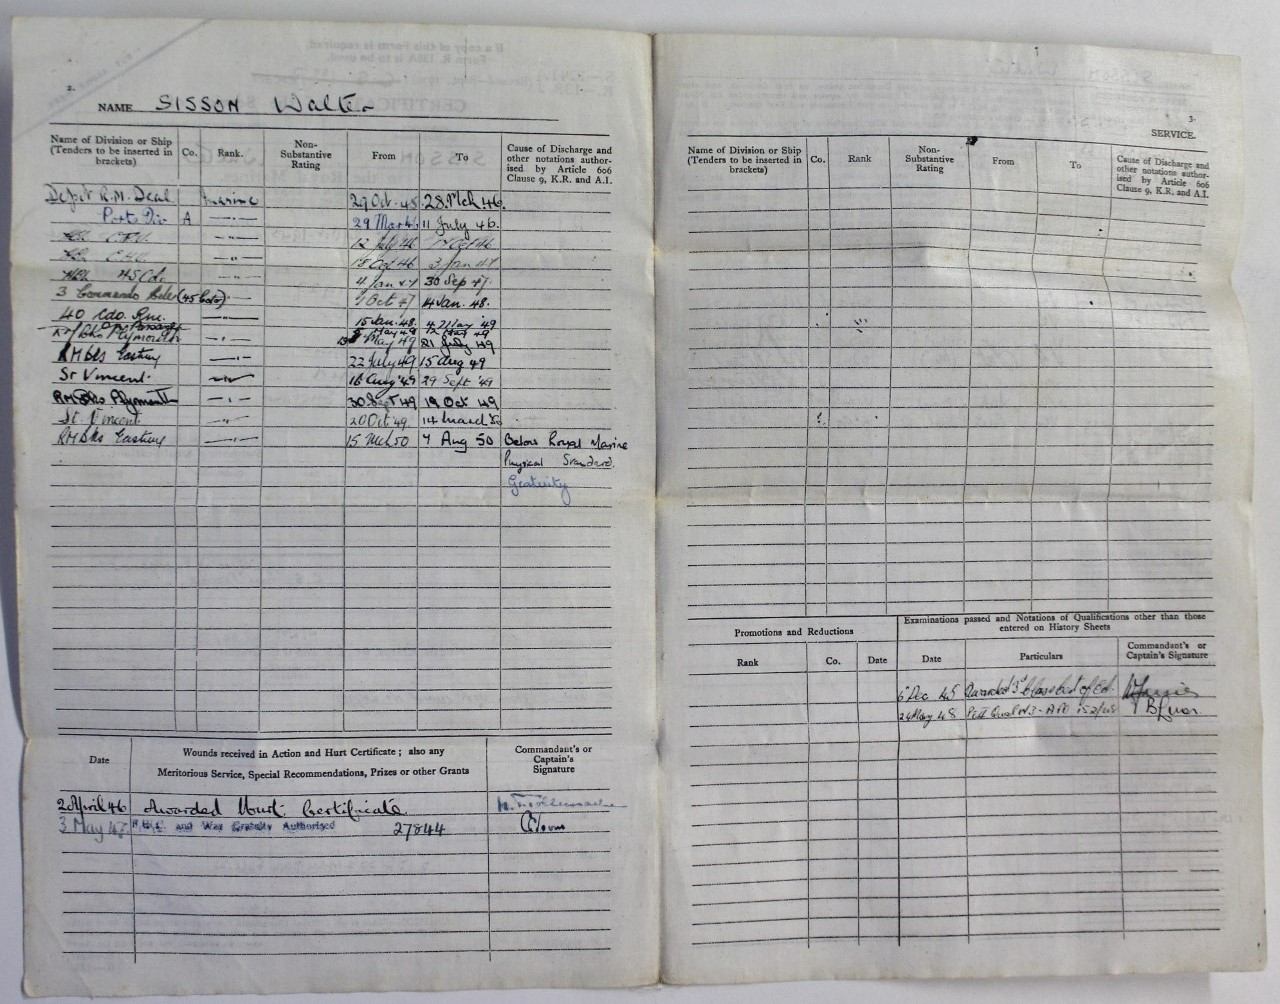 2.
NAME SISSON Walter
Name of Division or Ship (Tenders to be inserted in brackets) Co. Rank. Non-Substantive Rating From To Cause of Discharge and other notations authorised by Article 606 Clause 9, K.R. and A.I.
Depot R.M. Deal Marine 29 Oct. 45 28 Mch 46.
Ports Div A -"- 29 Mar 46 11 July 46.
-"- 12 July 46 Oct 46
-"- 15 Oct 46 3 Jan 47
45 Cdo. -"- 4 Jan 47 30 Sep 47.
3 Commando Bde (45 Cdo) -"- 1 Oct 47 14 Jan. 48.
40 Cdo. R.M. -"- 15 Jan. 48. 4 May '49
Plymouth -"- 13 May 49 21 July 49
RM Bks Eastney -"- 22 July 49 15 Aug 49
St Vincent. -"- 16 Aug '49 29 Sept '49
RM Bks Plymouth -"- 30 Sept '49 19 Oct 49
St. Vincent -"- 20 Oct '49. 14 March 50
RM Bks Eastney -"- 15 Mch 50 7 Aug 50 Below Royal Marine
Physical Standard.
Gratuity
Date Wounds received in Action and Hurt Certificate ; also any Meritorious Service, Special Recommendations, Prizes or other Grants Commandant's or Captain's Signature
2 April 46 Awarded Hurt Certificate
3 May and War Gratuity Authorised 27844
3.
SERVICE.
Name of Division or Ship (Tenders to be inserted in brackets) Co. Rank Non-Substantive Rating From To Cause of Discharge and other notations authorised by Article 606 Clause 9, K.R. and A.I.
Promotions and Reductions
Rank Co. Date
Examinations passed and Notations of Qualifications other than those entered on History Sheets
Date Particulars Commandant's or Captain's Signature
6 Dec 45 Awarded 3rd Class Cert of Ed.
24 May 48